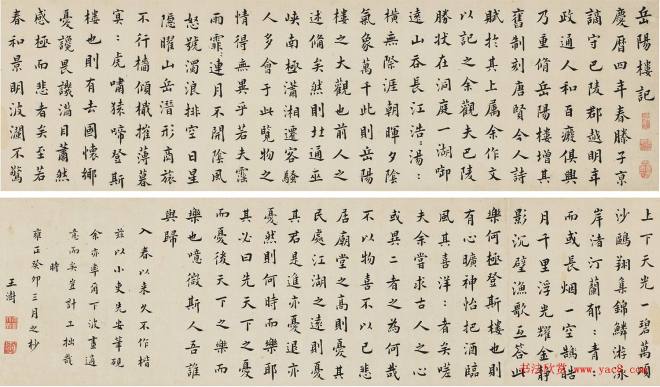 岳陽樓記
慶曆四年春滕子京
謫守巴陵郡越明年
政通人和百癈俱興
乃重脩岳陽樓增其
舊制刻唐賢今人詩
賦於其上屬余作文
以記之余觀夫巴陵
勝狀在洞庭一湖啣
遠山吞長江浩:湯:
橫無際涯朝暉夕陰
氣象萬千此則岳陽
樓之大觀也前人之
述備矣然則北通巫
峽南極瀟湘遷客騷
人多會于此覽物之
情得無異乎若夫霪
雨霏:連月不開陰風
怒號濁浪排空日星
隱曜山岳潛形商旅
不行檣傾檝摧薄暮
冥:虎嘯猿啼登斯
樓也則有去國懷鄉
憂讒畏譏滿目蕭然
感極而悲者矣至若
春和景明波瀾不驚
上下天光一碧萬頃
沙鷗翔集錦鱗游泳
岸汀蘭郁:青:
而或長烟一空皓
月千里浮光耀金靜
影沉璧漁歌互答此
樂何極登斯樓也則
有心曠神怡把酒臨
風其喜洋:者矣嗟
夫余嘗求古人之心
或異二者之為何哉
不以物喜不以己悲
居廟堂之高則憂其
民處江湖之遠則憂
其君是進亦憂退亦
憂然則何時而樂耶
其必曰先天下之憂
而憂後天下之樂而
樂也噫微斯人吾誰
與歸
入春以來久不作楷
茲以小史先安筆硯
余亦率爾下波書適
意而矣豈計工拙哉
時
雍正癸卯三月之杪
王澍
书法欣赏 www.yac8.com